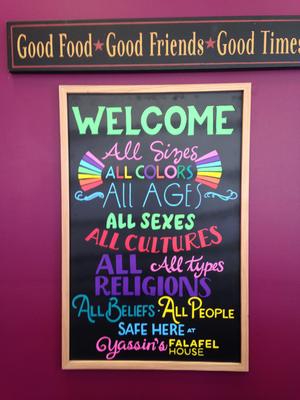 Good Food★Good Friends★Good Times
WELCOME
All Sizes
ALL COLORS
All AGES
ALL SEXES
ALL CULTURES
ALL All types
RELIGIONS
All BELIEFS · All PEOPLE
SAFE HERE AT
Yassin's FALAFEL
HOUSE